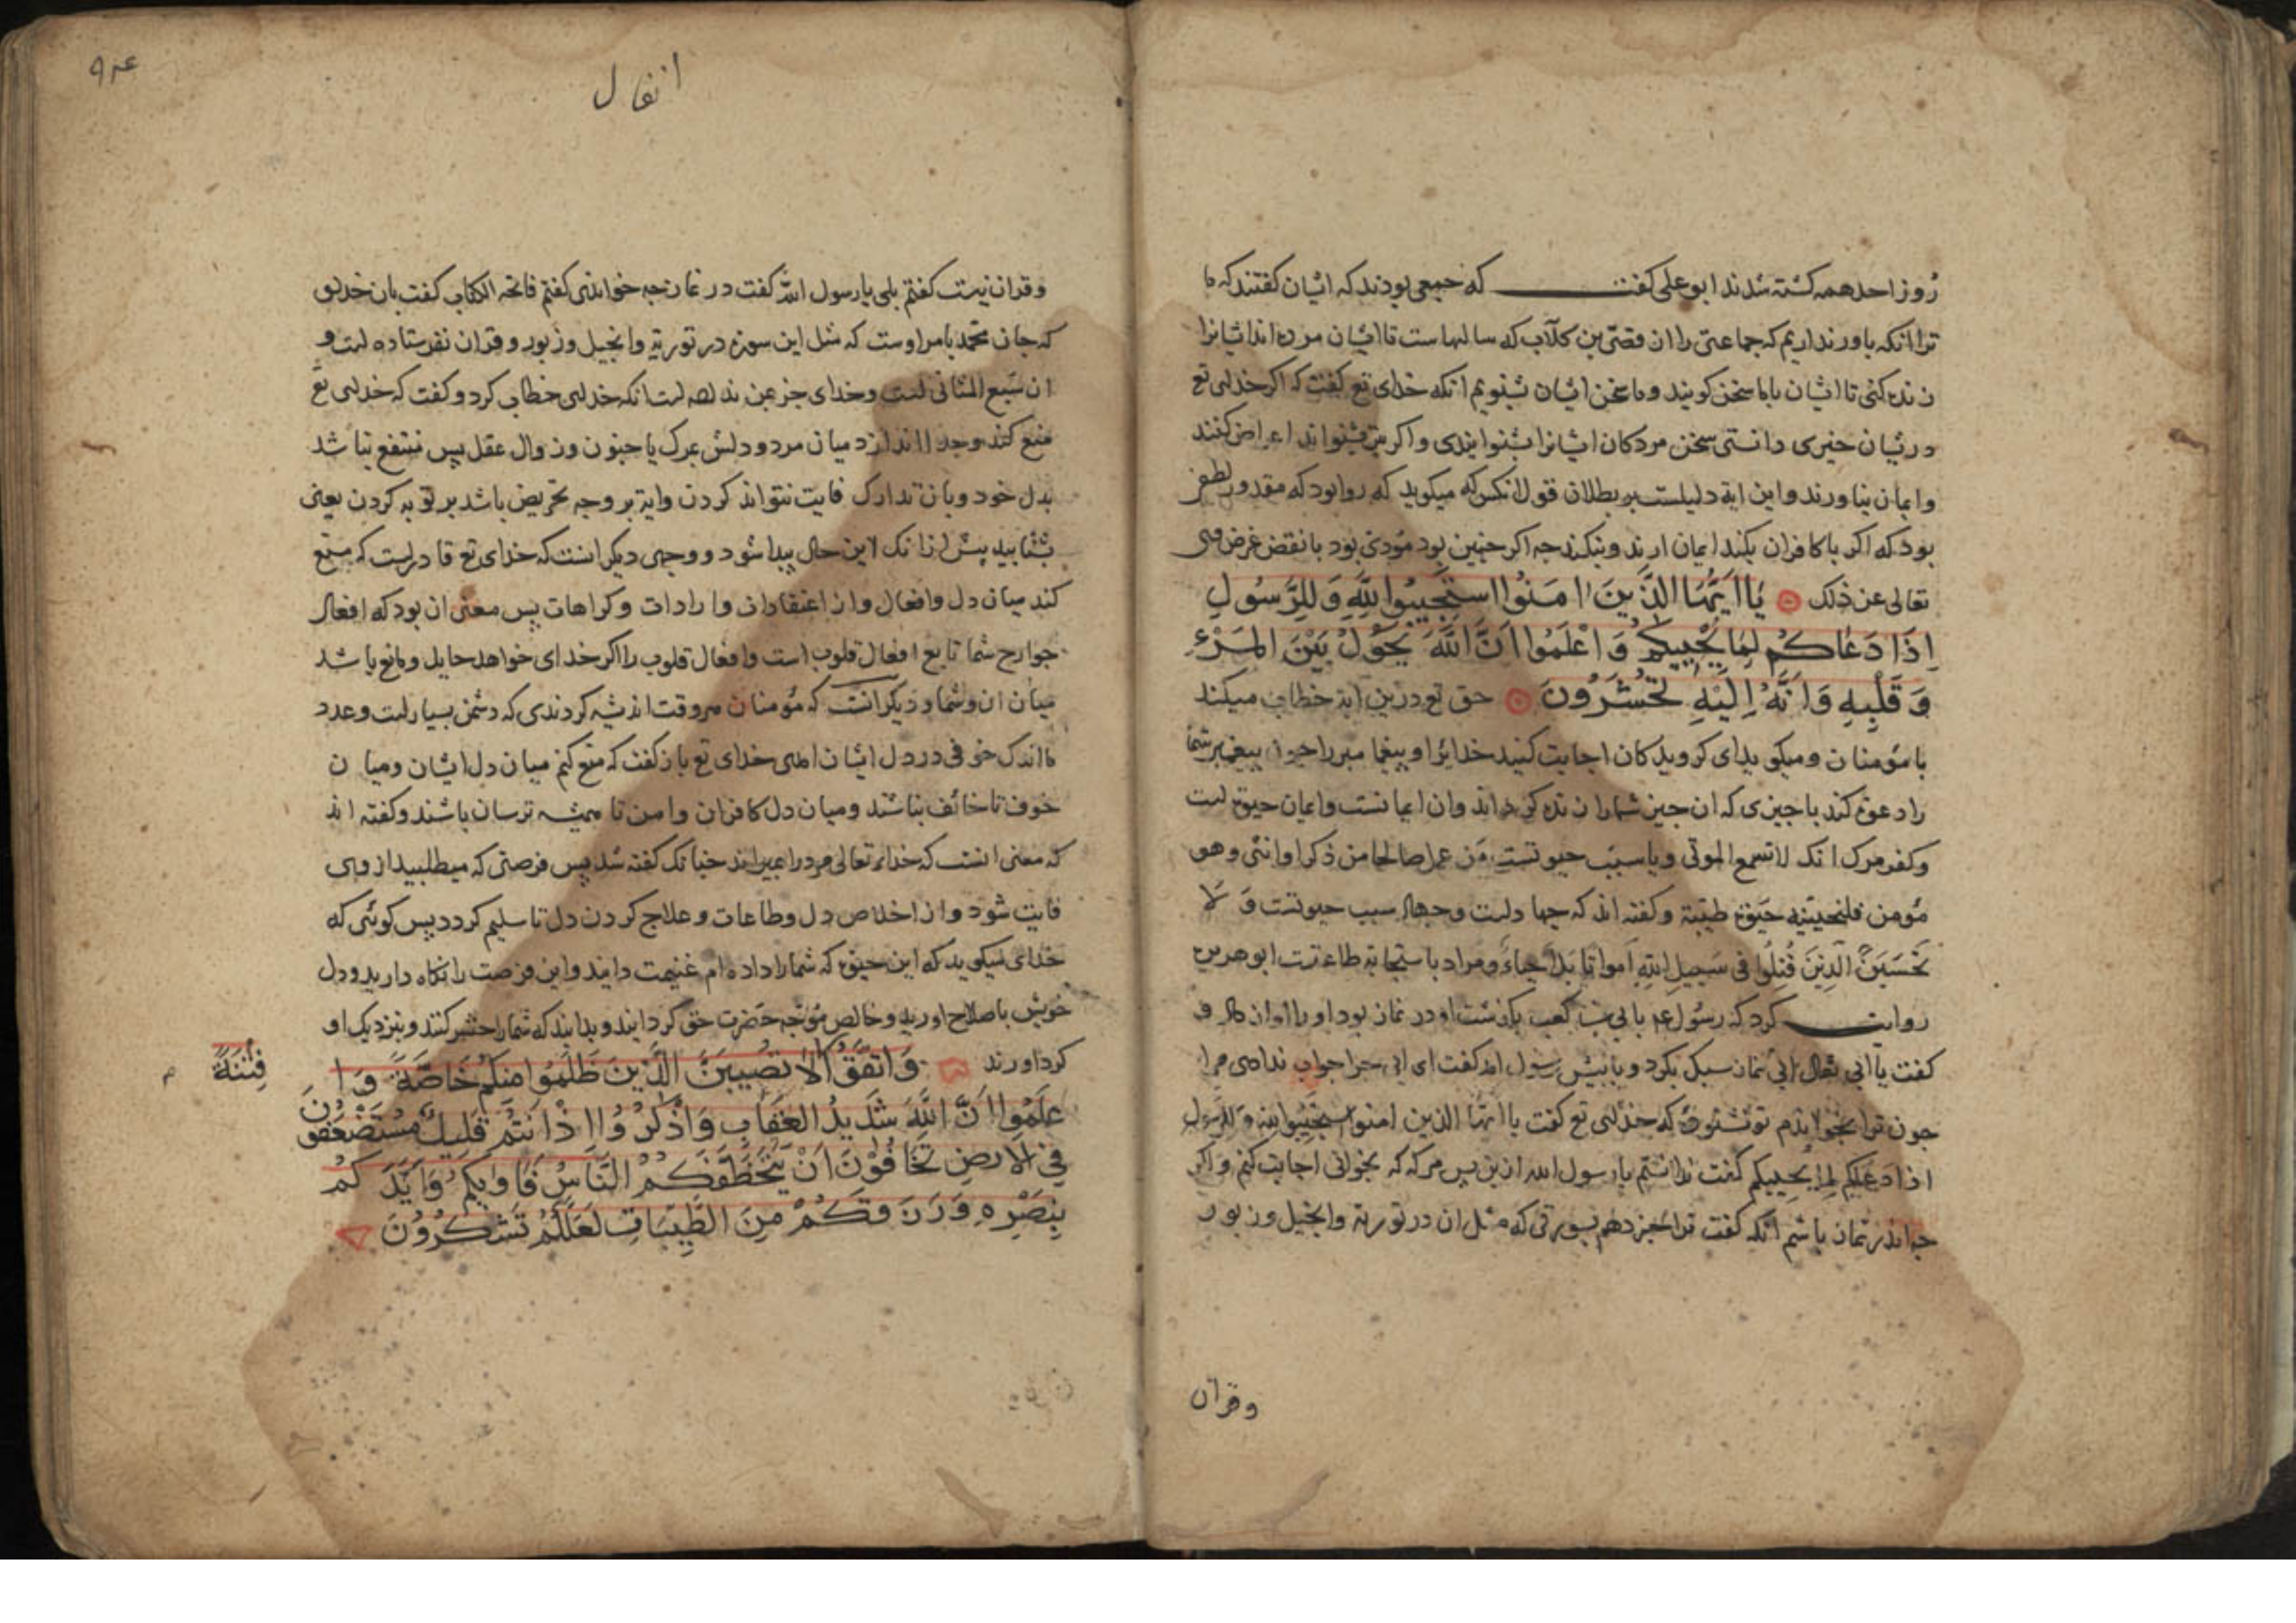 روز احد همه کشته شدند ابو علی کفت که جمعی بودند که ایشان کفتند که ما
ترا انکه باور نداریم که جماعتی را از قصی بن کلاب که سالهاست تا ایشان مرده اند ایشانرا
زنده کنی تا ایشان باما سخن کویند وما سخن ایشان شنویم انکه خدای تع کفت که اکر خدای تع
در یشان خیری دانستی سخن مردکان ایشانرا بشنوایندی واکر بشنواند اعراض کنند
وایمان نیاورند واین ایة دلیلست بر بطلان قول انکس که میکوید که روا بود که مقدور لطفی
بود که اکر با کافران بکند ایمان ارند ونکند جه اکر جنین بود مؤدی بود با نقض غرض وی
تعالی عن ذلک یا ایها الذین امنوا استجیبوا لله وللرسول
اذا دعاکم لما یحییکم واعلموا ان الله یحول بین المرء
وقلبه وانه الیه تحشرون حق تع درین ایة خطاب میکند
با مؤمنان ومیکوید ای کرویدکان اجابت کنید خدایرا وپیغامبر را جون پیغمبر شما
را دعوة کند با جیزی که ان جیز شما را زنده کرداند وان ایمانست وایمان حیوة است
وکفر مرک انک لا تسمع الموتی ویا سبب حیوتست من عمل صالحا من ذکر او انثی وهو
مؤمن فلنحیینه حیوة طیبة وکفته اند که جهادست وجهاد سبب حیوتست ولا
تحسبن الذین قتلوا فی سبیل الله امواتا بل احیاء ومراد باستجابة طاعتست ابو هریره
روایت کرد که رسول عم بابی بن کعب بکذشت او در نماز بود او را اواز داد و
کفت یا ابی تعال ابی نماز سبک بکرد و پیش رسول امد کفت ای ابی جرا جواب ندادی مرا
جون ترا بخواندم تو نشنودی که خدای تع کفت یا ایها الذین امنوا استجیبوا لله وللرسول
اذا دعاکم لما یحییکم کفت ندانستم یا رسول الله ازین پس هرکه که بخوانی اجابت کنم واکر
جه اندر نماز باشم انکه کفت ترا خبر دهم بسورتی که مثل ان در توریة وانجیل وزبور
وقران
۹۳۴
انفال
وقران نیست کفتم بلی یا رسول الله کفت در نماز جه خوانی کفتم فاتحه الکتاب کفت بان خدای
که جان محمد بامر اوست که مثل این سوره در توریة وانجیل وزبور وقران نفرستاده است و
ان سبع المثانی است وخدای جز بمن نداده است انکه خدای خطاب کرد وکفت که خدای تع
منع کند وجدا اندازد میان مرد ودلش بمرک یا جنون وزوال عقل پس منتفع نباشد
بدل خود وبان تدارک فایت نتواند کردن وایة بر وجه تحریض باشد بر توبه کردن یعنی
بشتابید پیش ازانک این حال پیدا شود ووجهی دیکر انست که خدای تع قادرست که منع
کند میان دل وافعال وان اعتقادات وارادات وکراهات پس معنی ان بود که افعال
جوارح شما تابع افعال قلوب است وافعال قلوب را اکر خدای خواهد حایل ومانع باشد
میان ان وشما ودیکر انست که مؤمنان هر وقت اندیشه کردندی که دشمن بسیارست وعدد
ما اندک خوفی در دل ایشان امدی خدای تع باز کفت که منع کنم میان دل ایشان ومیان
خوف تا خائف نباشند ومیان دل کافران وامن تا همیشه ترسان باشند وکفته اند
که معنی انست که خدای تعالی مرد را بمیراند جنانک کفته شد پس فرصتی که میطلبید از وی
فایت شود وان اخلاص دل وطاعات وعلاج کردن دل تا سلیم کردد پس کوئی که
خدای میکوید که این حیوة که شما را داده ام غنیمت دانید واین فرصت را نکاه دارید ودل
خویش باصلاح اورید وخالص متوجه حضرت حق کردانید وبدانید که شما را حشر کنند وبنزدیک او
کرد اورند واتقوا لا تصیبن الذین ظلموا منکم خاصة وا
فتنة م
علموا ان الله شدید العقاب واذکروا اذ انتم قلیل مستضعفون
فی الارض تخافون ان یتخطفکم الناس فاویکم وایدکم
بنصره ورزقکم من الطیبات لعلکم تشکرون